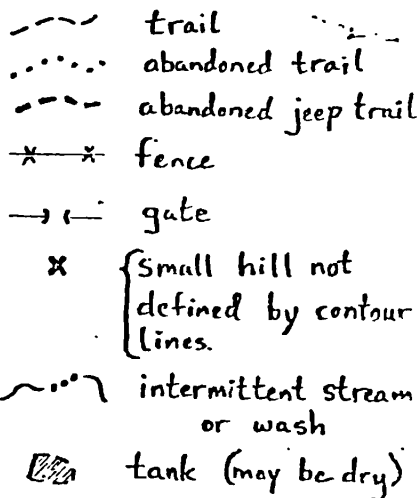 trail
abandoned trail
abandoned jeep trail
fence
gate
small hill not
defined by contour
lines.
intermittent stream
or wash
tank (may be dry)